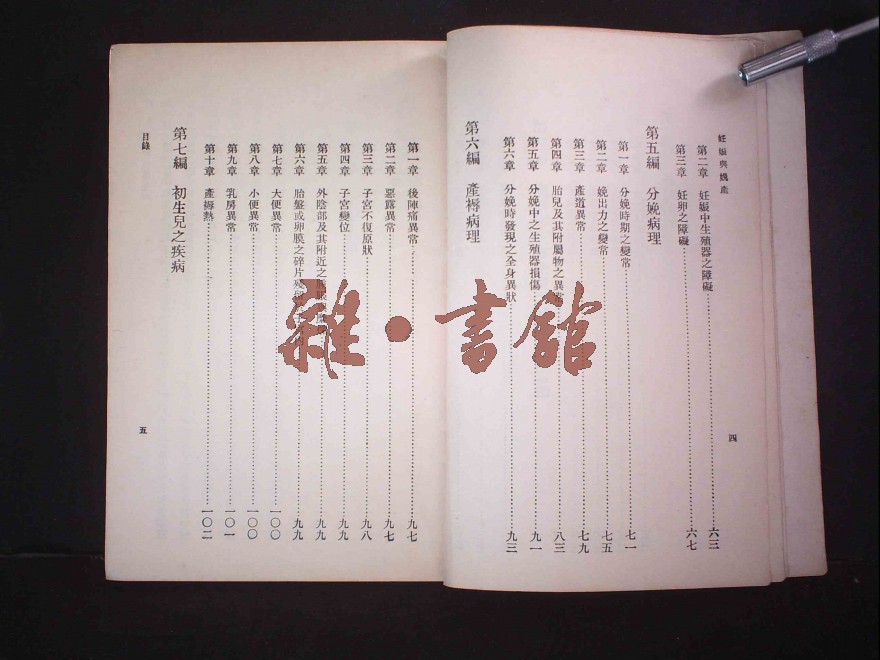 妊娠與娩產
第二章 妊娠中生殖器之障礙 六三
第三章 妊卵之障礙 六七
第五編 分娩病理
第一章 分娩時期之變常 七一
第二章 娩出力之變常 七五
第三章 產道異常 七九
第四章 胎兒及其附屬物之異常 八三
第五章 分娩中之生殖器損傷 九一
第六章 分娩時發現之全身異狀 九三
第六編 產褥病理
四
第一章 後陣痛異常 九七
第二章 惡露異常 九七
第三章 子宮不復原狀 九八
第四章 子宮變位 九九
第五章 外陰部及其附近之 九九
第六章 胎盤或卵膜之碎片殘留 九九
第七章 大便異常 一〇〇
第八章 小便異常 一〇〇
第九章 乳房異常 一〇一
第十章 產褥熱 一〇二
第七編 初生兒之疾病
目錄
五
雜·書館